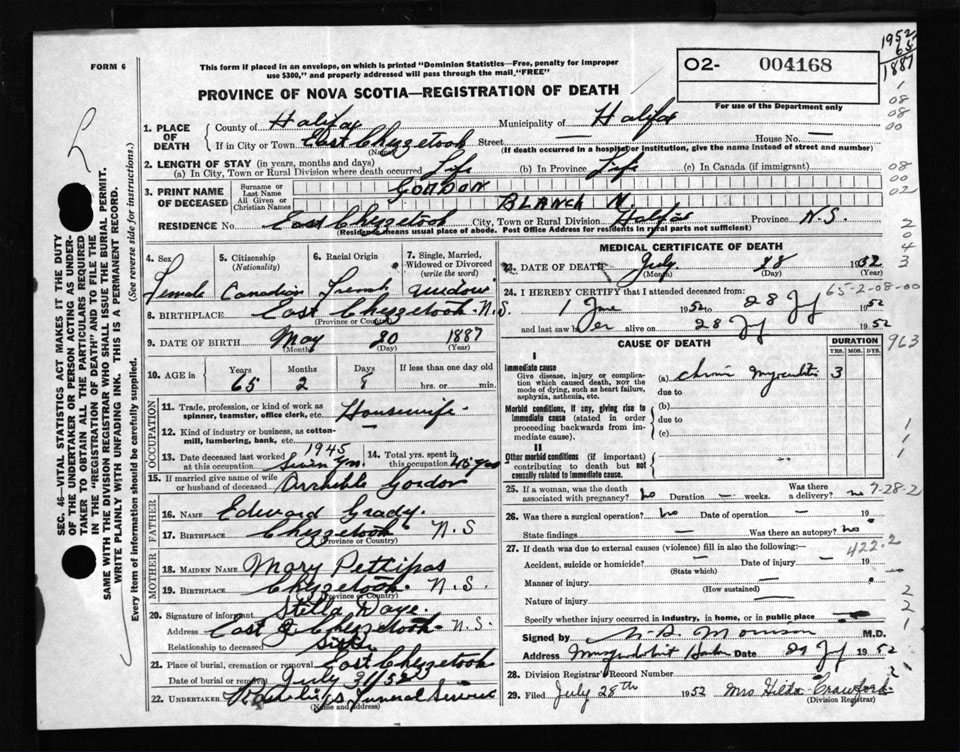 FORM 6
This form if placed in an envelope, on which is printed "Dominion Statistics—Free, penalty for improper
use $300," and properly addressed will pass through the mail "FREE"
PROVINCE OF NOVA SCOTIA—REGISTRATION OF DEATH
O2- 004168
For use of the Department only
1952
65
1887
1. PLACE OF DEATH
County of Halifax Municipality of Halifax
If in City or Town East Chezzetcook Street — House No. —
(Name) (If death occurred in a hospital or institution, give the name instead of street and number)
2. LENGTH OF STAY (in years, months and days)
(a) In City, Town or Rural Division where death occurred Life (b) In Province Life (c) In Canada (if immigrant)
3. PRINT NAME OF DECEASED
Surname or Last Name GORDON
All Given or Christian Names BLANCH M.
RESIDENCE No. East Chezzetcook City, Town or Rural Division Halifax Province N.S.
(Residence means usual place of abode. Post Office Address for residents in rural parts not sufficient)
4. Sex Female
5. Citizenship (Nationality) Canadian
6. Racial Origin French
7. Single, Married, Widowed or Divorced (write the word) Widow
8. BIRTHPLACE East Chezzetcook N.S.
(Province or Country)
9. DATE OF BIRTH May 20 1887
(Month) (Day) (Year)
10. AGE in Years 65 Months 2 Days 8 If less than one day old hrs. or min.
OCCUPATION
11. Trade, profession, or kind of work as spinner, teamster, office clerk, etc. Housewife
12. Kind of industry or business, as cotton-mill, lumbering, bank, etc. —
13. Date deceased last worked at this occupation 1945 Seven Yrs. 14. Total yrs. spent in this occupation 45 Yrs
15. If married give name of wife or husband of deceased Archible Gordon
FATHER
16. Name Edward Grady.
17. BIRTHPLACE Chezzetcook N.S
(Province or Country)
MOTHER
18. MAIDEN NAME Mary Pettipas
19. BIRTHPLACE Chezzetcook N.S.
(Province or Country)
20. Signature of informant Stella Daye.
Address East Chezzetcook N.S.
Relationship to deceased Sister
21. Place of burial, cremation or removal East Chezzetcook
Date of burial or removal July 31/52
22. UNDERTAKER Funeral Service
(Name and address)
MEDICAL CERTIFICATE OF DEATH
23. DATE OF DEATH July 28 1952
(Month) (Day) (Year)
24. I HEREBY CERTIFY that I attended deceased from:
65-2-08-00
1 June 1952 to 28 Jy 1952
and last saw her alive on 28 Jy 1952
CAUSE OF DEATH
DURATION
YRS. MOS. DYS.
963
I
Immediate cause
Give disease, injury or complication which caused death, NOT the mode of dying, such as heart failure, asphyxia, asthenia, etc.
(a) chronic myocarditis 3
due to
Morbid conditions, if any, giving rise to immediate cause (stated in order proceeding backwards from immediate cause).
(b)
due to
(c)
II
Other morbid conditions (if important) contributing to death but not causally related to immediate cause.
25. If a woman, was the death associated with pregnancy? no Duration — weeks. Was there a delivery? no
7-28-2
26. Was there a surgical operation? no Date of operation — 19
State findings — Was there an autopsy? no
27. If death was due to external causes (violence) fill in also the following:—
422.2
Accident, suicide or homicide? — (State which) Date of injury — 19
Manner of injury — (How sustained)
Nature of injury —
Specify whether injury occurred in industry, in home, or in public place
Signed by Morrison M.D.
Address Musquodoboit Harbor Date 29 Jy 1952
28. Division Registrar's Record Number
29. Filed July 28th 1952 Mrs Hilda Crawford
(Division Registrar)
SEC. 46—VITAL STATISTICS ACT MAKES IT THE DUTY
OF THE UNDERTAKER OR PERSON ACTING AS UNDER-
TAKER TO OBTAIN ALL THE PARTICULARS REQUIRED
IN THE "REGISTRATION OF DEATH" AND TO FILE THE
SAME WITH THE DIVISION REGISTRAR WHO SHALL ISSUE THE BURIAL PERMIT.
WRITE PLAINLY WITH UNFADING INK. THIS IS A PERMANENT RECORD.
Every item of information should be carefully supplied. (See reverse side for instructions.)